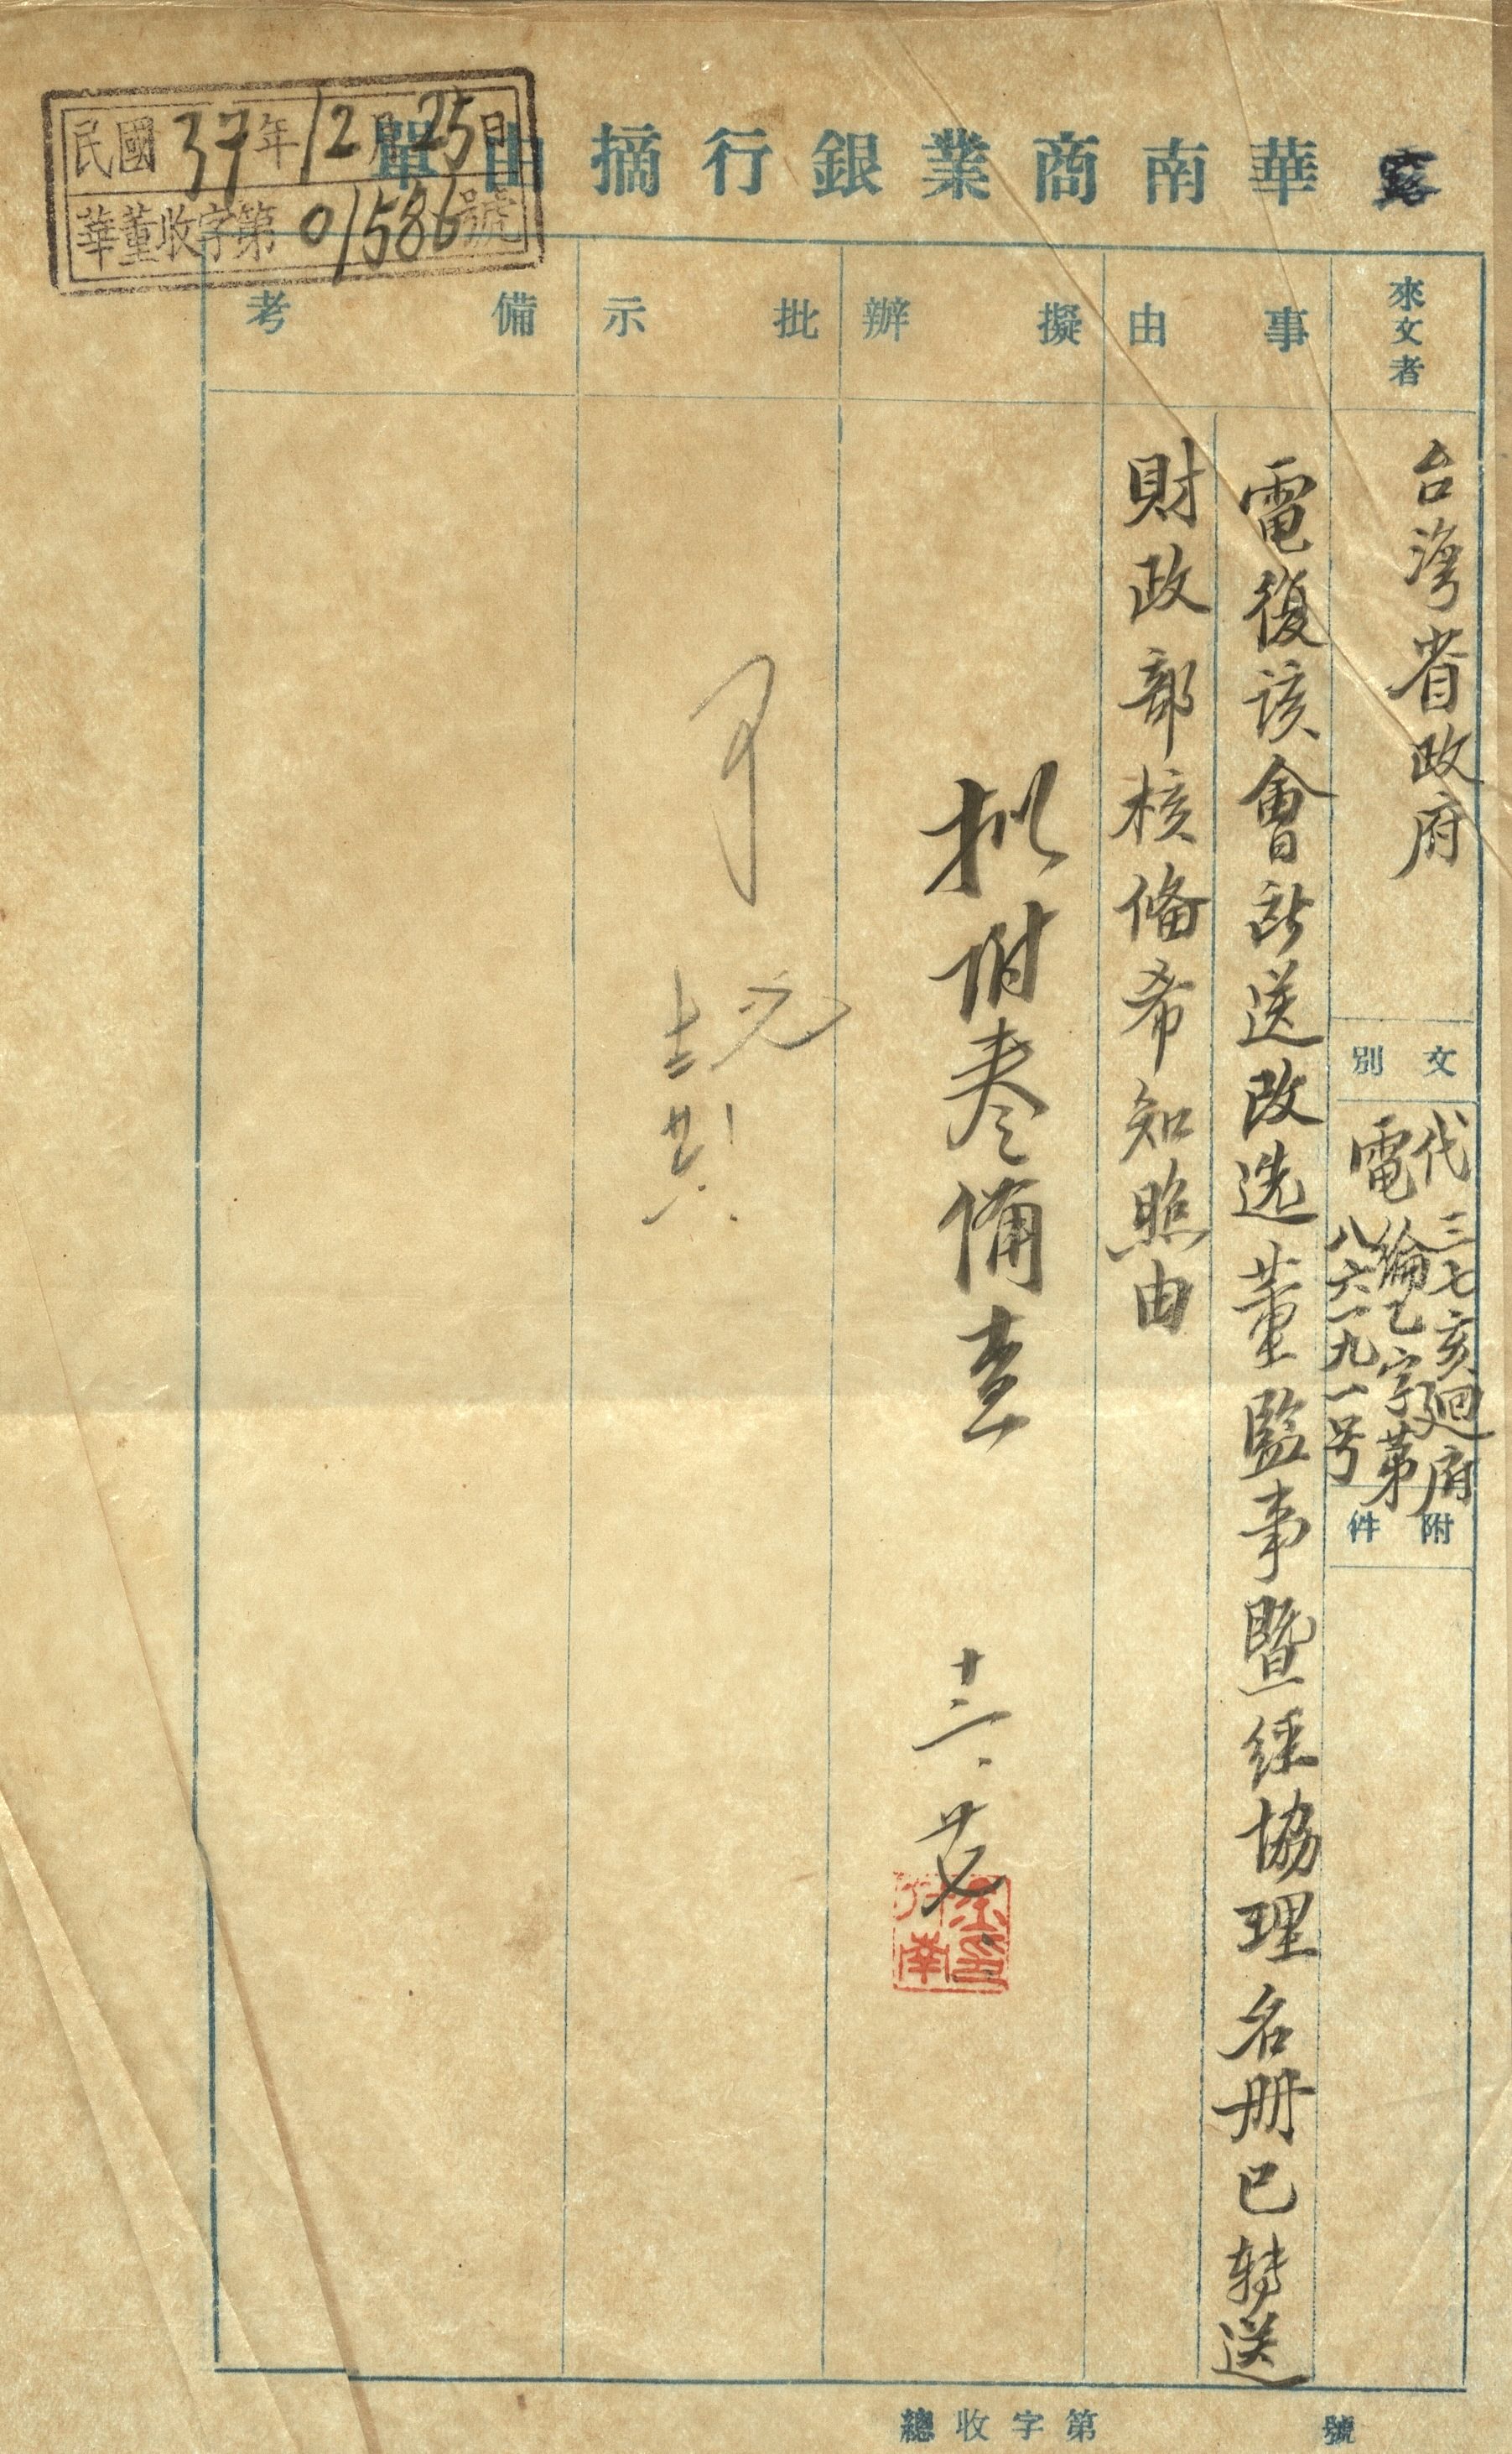 華南商業銀行摘由單
民國37年12月25日
華董收字第01586號
來文者
台灣省政府
文別
代電
三七亥廻府
綸乙字第
八六一九一号
附件
事由
電復該會所送改选董監事暨經協理名册已轉送
財政部核俻希知照由
擬辦
拟附卷備查
十二.廿七
批示
可
十二
備考
總收字第 號